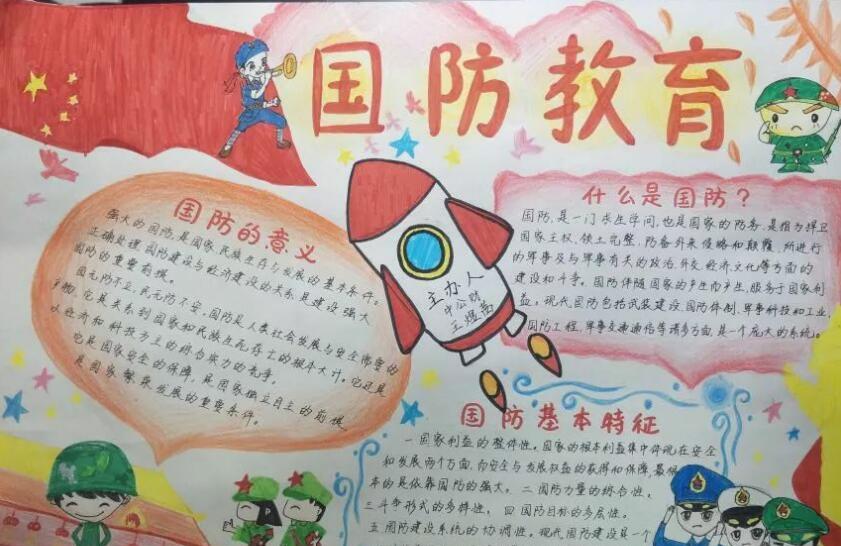 国防教育
国防的意义
强大的国防,是国家,民族生存与发展的基本条件。
正确处理国防建设与经济建设的关系,是建设强大
国防的重要前提。
国无防不立,民无防不安,国防是人类社会发展与安全需要的
产物,它是关系到国家和民族生死存亡的根本大计。它还是
以经济和科技为主的综合实力的竞争。
它是国家安全的保障,是国家独立自主的前提
是国家繁荣发展的重要条件。
主办人
什么是国防?
国防,是一门长生学问,也是国家的防务,是指为捍卫
国家主权、领土完整,防备外来侵略和颠覆,所进行
的军事及与军事有关的政治、外交、经济、文化等方面的
建设和斗争。国防伴随国家的产生而产生,服务于国家利
益。现代国防包括武装建设、国防体制、军事科技和工业,
国防工程,军事交通通信等诸多方面,是一个庞大的系统。
国防基本特征
一国家利益的整体性。国家的根本利益集中体现在安全
和发展两个方面,而安全与发展权益的获得和保障,最根
本的是依靠国防的强大。二国防力量的综合性,
三斗争形式的多样性,四国防目标的多层性。
五国防建设系统的协调性。现代国防建设是一个